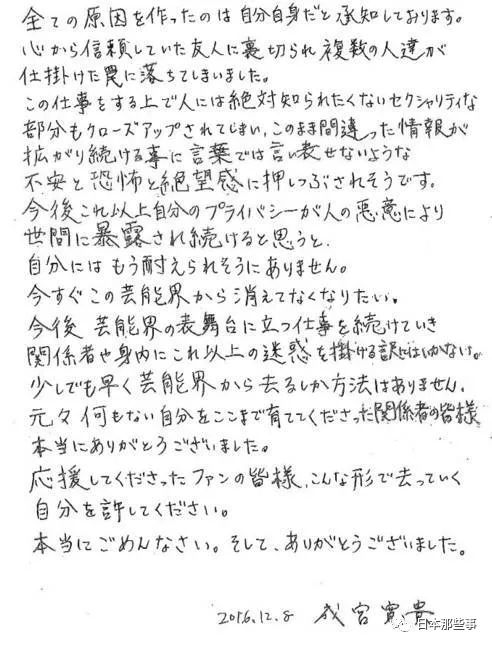 全ての原因を作ったのは自分自身だと承知しております。
心から信頼していた友人に裏切られ複数の人達が
仕掛けた罠に落ちてしまいました。
この仕事をする上で人には絶対知られたくないセクシャリティな
部分もクローズアップされてしまい、このまま間違った情報が
拡がり続ける事に言葉では言い表せないような
不安と恐怖と絶望感に押しつぶされそうです。
今後これ以上自分のプライバシーが人の悪意により
世間に暴露され続けると思うと、
自分にはもう耐えられそうにありません。
今すぐこの芸能界から消えてなくなりたい。
今後芸能界の表舞台に立つ仕事を続けていき
関係者や身内にこれ以上の迷惑を掛ける訳にはいかない。
少しでも早く芸能界から去るしか方法はありません。
元々何もない自分をここまで育ててくださった関係者の皆様
本当にありがとうございました。
応援してくださったファンの皆様、こんな形で去っていく
自分を許してください。
本当にごめんなさい。そして、ありがとうございました。
2016.12.8 成宮寛貴
日本那些事